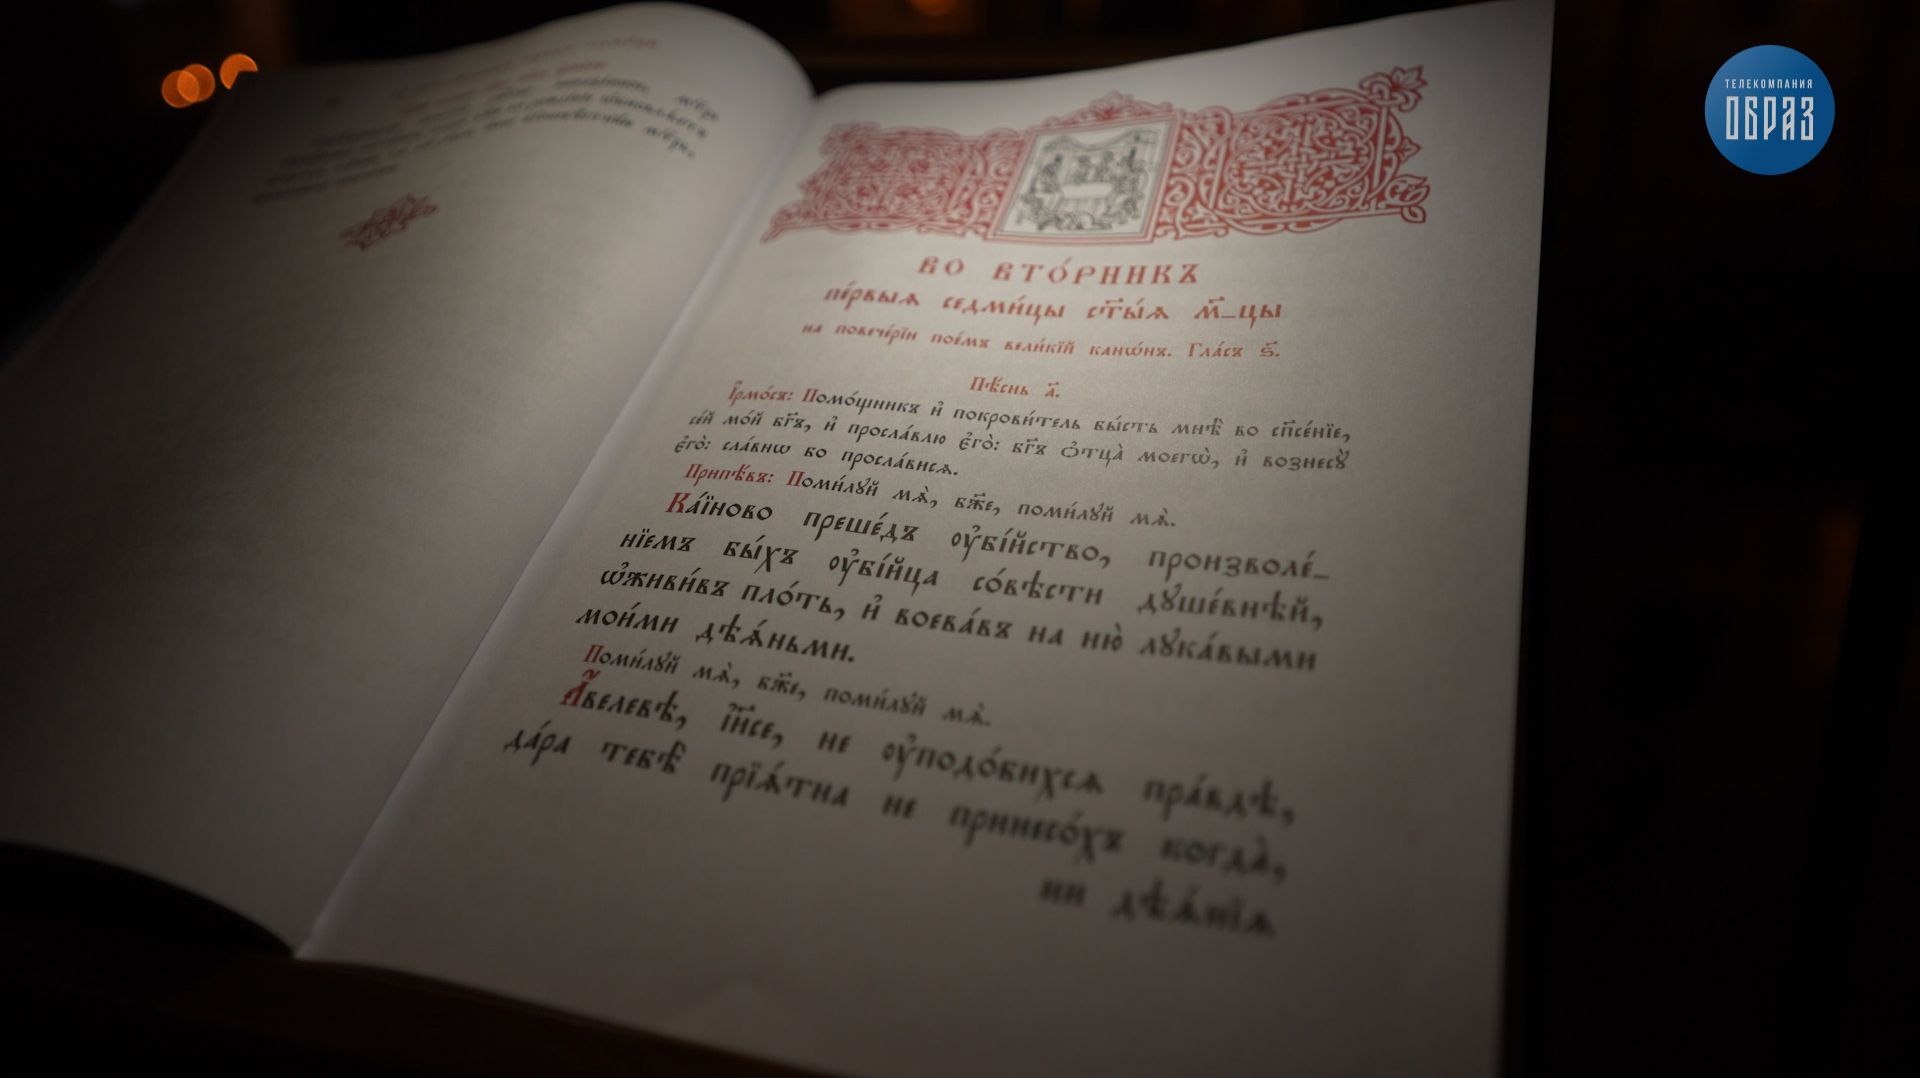 ВО ВТО́РНИКЪ
пе́рвыѧ седми́цы ст҃ы́ѧ м҃-цы
на повече́рїи пое́мъ вели́кїй канѡ́нъ. Гла́съ ѕ҃.
Пѣ́снь а҃.
І҆рмо́съ: Помо́щникъ и҆ покрови́тель бы́сть мнѣ̀ во сп҃се́нїе,
се́й мо́й бг҃ъ, и҆ просла́влю є҆го̀: бг҃ъ ѻ҆тца̀ моегѡ̀, и҆ вознесꙋ̀
є҆го̀: сла́внѡ бо просла́висѧ.
Припѣ́въ: Поми́лꙋй мѧ̀, бж҃е, поми́лꙋй мѧ̀.
Ка́їново преше́дъ ᲂу҆бі́йство, произволе́-
нїемъ бы́хъ ᲂу҆бі́йца со́вѣсти дꙋше́внѣй,
ѡ҆живи́въ пло́ть, и҆ воева́въ на ню̀ лꙋка́выми
мои́ми дѣѧ́ньми.
Поми́лꙋй мѧ̀, бж҃е, поми́лꙋй мѧ̀.
А҆́велевѣ, і҆и҃се, не ᲂу҆подо́бихсѧ пра́вдѣ,
да́ра тебѣ̀ прїѧ́тна не принесо́хъ когда̀,
ни дѣѧ́нїѧ
ТЕЛЕКОМПАНИЯ
ОБРАЗ